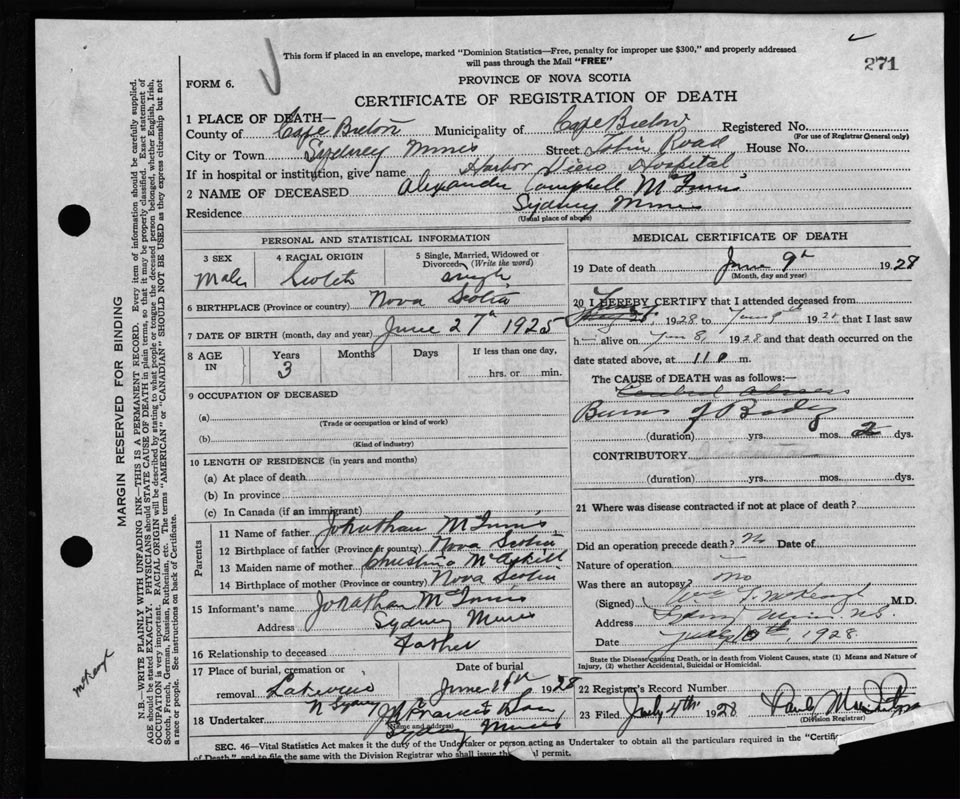 This form if placed in an envelope, marked "Dominion Statistics—Free, penalty for improper use $300," and properly addressed
will pass through the Mail "FREE"
271
FORM 6.
PROVINCE OF NOVA SCOTIA
CERTIFICATE OF REGISTRATION OF DEATH
1 PLACE OF DEATH—
County of Cape Breton Municipality of Cape Breton Registered No.
(For use of Registrar General only)
City or Town Sydney Mines Street Tobin Road House No.
If in hospital or institution, give name Harbor View Hospital
2 NAME OF DECEASED Alexander Campbell McInnis
Residence Sydney Mines
(Usual place of abode)
PERSONAL AND STATISTICAL INFORMATION
3 SEX 4 RACIAL ORIGIN 5 Single, Married, Widowed or
Divorced (Write the word)
Male Scotch Single
6 BIRTHPLACE (Province or country) Nova Scotia
7 DATE OF BIRTH (month, day and year) June 27th 1925
8 AGE IN Years Months Days If less than one day,
3 hrs. or min.
9 OCCUPATION OF DECEASED
(a)
(Trade or occupation or kind of work)
(b)
(Kind of industry)
10 LENGTH OF RESIDENCE (in years and months)
(a) At place of death
(b) In province
(c) In Canada (if an immigrant)
Parents
11 Name of father Johathan McInnis
12 Birthplace of father (Province or country) Nova Scotia
13 Maiden name of mother Christina McAskill
14 Birthplace of mother (Province or country) Nova Scotia
15 Informant's name Jonathan McInnis
Address Sydney Mines
16 Relationship to deceased Father
17 Place of burial, cremation or Date of burial
removal Lakeview June 1928
N Sydney
18 Undertaker
(Name and address)
Sydney Mines
MEDICAL CERTIFICATE OF DEATH
19 Date of death June 9th 1928
(Month, day and year)
20 I HEREBY CERTIFY that I attended deceased from
1928 to June 9th 1928 that I last saw
h alive on Jun 8, 1928 and that death occurred on the
date stated above, at 11 P m.
The CAUSE of DEATH was as follows:—
Cerebral Abscess
Burns of Body
(duration) yrs. mos. 2 dys.
CONTRIBUTORY
(duration) yrs. mos. dys.
21 Where was disease contracted if not at place of death?
Did an operation precede death? No Date of
Nature of operation
Was there an autopsy? no
(Signed) McKeough M.D.
Address Sydney Mines N.S.
Date 1928
State the Disease causing Death, or in death from Violent Causes, state (1) Means and Nature of
Injury, (2) whether Accidental, Suicidal or Homicidal.
22 Registrar's Record Number
23 Filed July 4th 1928
(Division Registrar)
SEC. 46—Vital Statistics Act makes it the duty of the Undertaker or person acting as Undertaker to obtain all the particulars required in the "Certific
of Death," and to file the same with the Division Registrar who shall issue the permit.
MARGIN RESERVED FOR BINDING
N.B.—WRITE PLAINLY WITH UNFADING INK—THIS IS A PERMANENT RECORD. Every item of information should be carefully supplied.
AGE should be stated EXACTLY. PHYSICIANS should STATE CAUSE OF DEATH in plain terms, so that it may be properly classified. Exact statement of
OCCUPATION is very important. RACIAL ORIGIN will be described by stating to what people or tongue the deceased person belonged, whether English, Irish,
Scotch, French, German, Russian, Ruthenian, etc. The terms "AMERICAN" or "CANADIAN" SHOULD NOT BE USED as they express citizenship but not
a race or people. See instructions on back of Certificate.